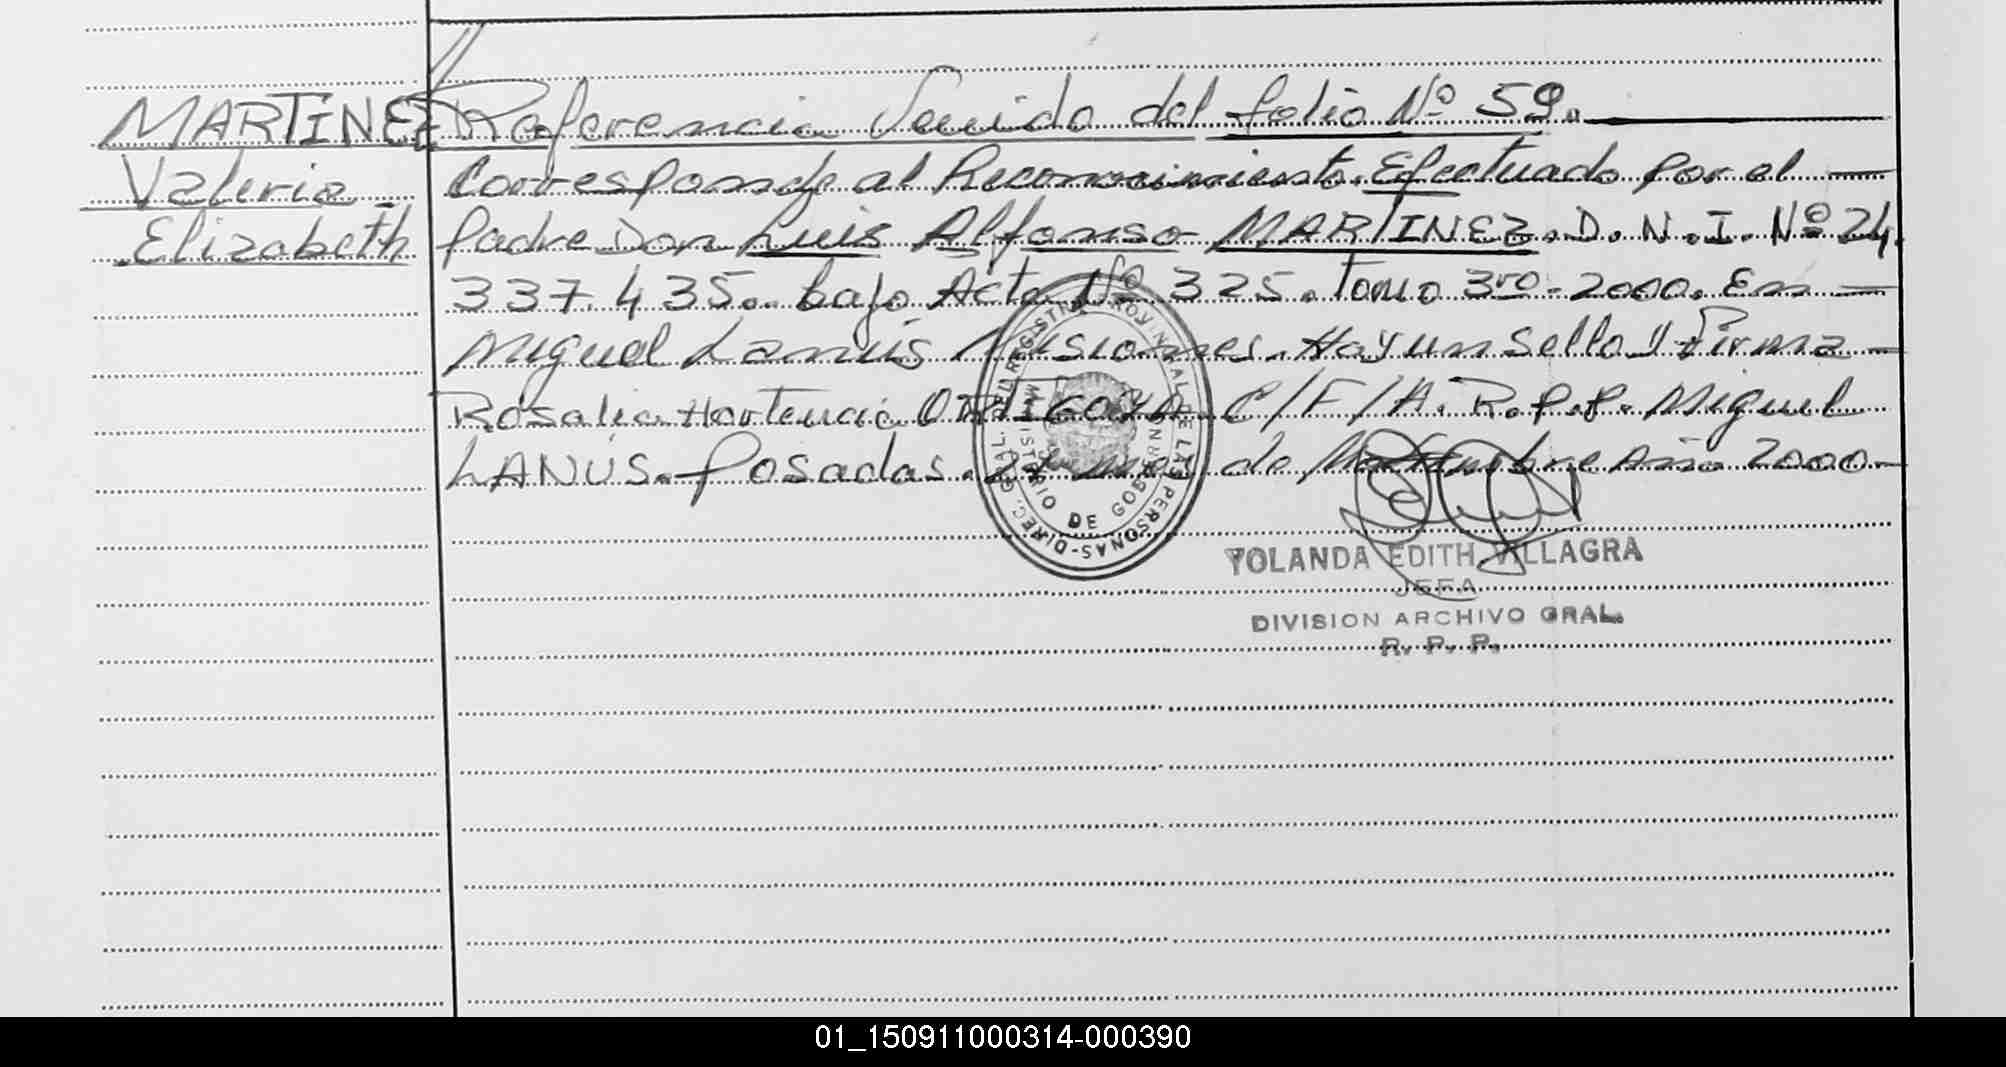 MARTINEZ
Valeria
Elizabeth
Referencia Venido del folio Nº 59.
Corresponde al Reconocimiento Efectuado por el
padre Don Luis Alfonso MARTINEZ. D.N.I. Nº 24.
337.435. bajo Acta Nº 325. Tomo 3ro- 2000. En
Miguel Lanús Misiones. Hay un Sello y Firma
Rosalia Hortencia C/F/A. R.P.P. Miguel
LANÚS. Posadas. de Año 2000-
DIREC. GRAL. DEL REGISTRO PROVINCIAL DE LAS PERSONAS
MINISTERIO DE GOBIERNO
YOLANDA EDITH VILLAGRA
JEFA
DIVISION ARCHIVO GRAL.
R. P. P.
01_150911000314-000390